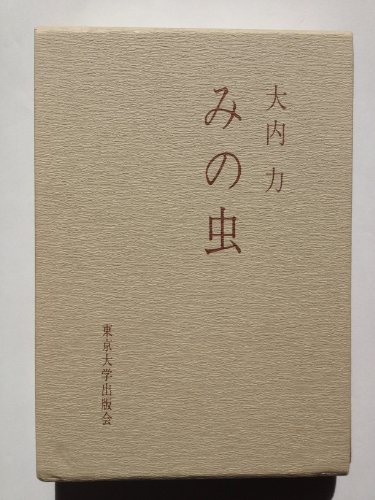 大内 力
みの虫
東京大学出版会